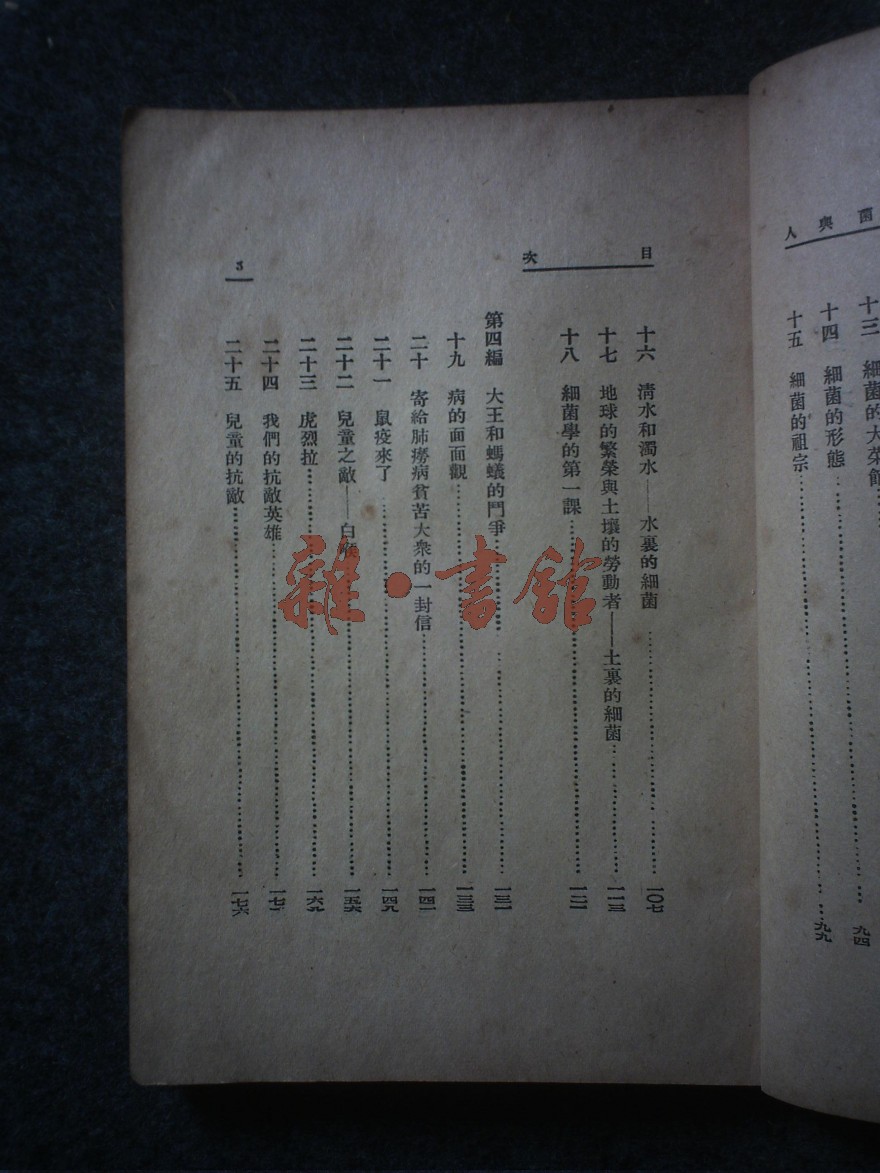 菌與人
十三 細菌的大菜館
十四 細菌的形態……九四
十五 細菌的祖宗……九九
目次
十六 清水和濁水——水裏的細菌……一〇七
十七 地球的繁榮與土壤的勞動者——土裏的細菌……一一三
十八 細菌學的第一課……一二一
第四編 大王和螞蟻的鬥爭……一三一
十九 病的面面觀……一三三
二十 寄給肺癆病貧苦大衆的一封信……一四一
二十一 鼠疫來了……一四九
二十二 兒童之敵——白喉……一五六
二十三 虎烈拉……一六九
二十四 我們的抗敵英雄……一七
二十五 兒童的抗敵……一七六
3
雜·書館